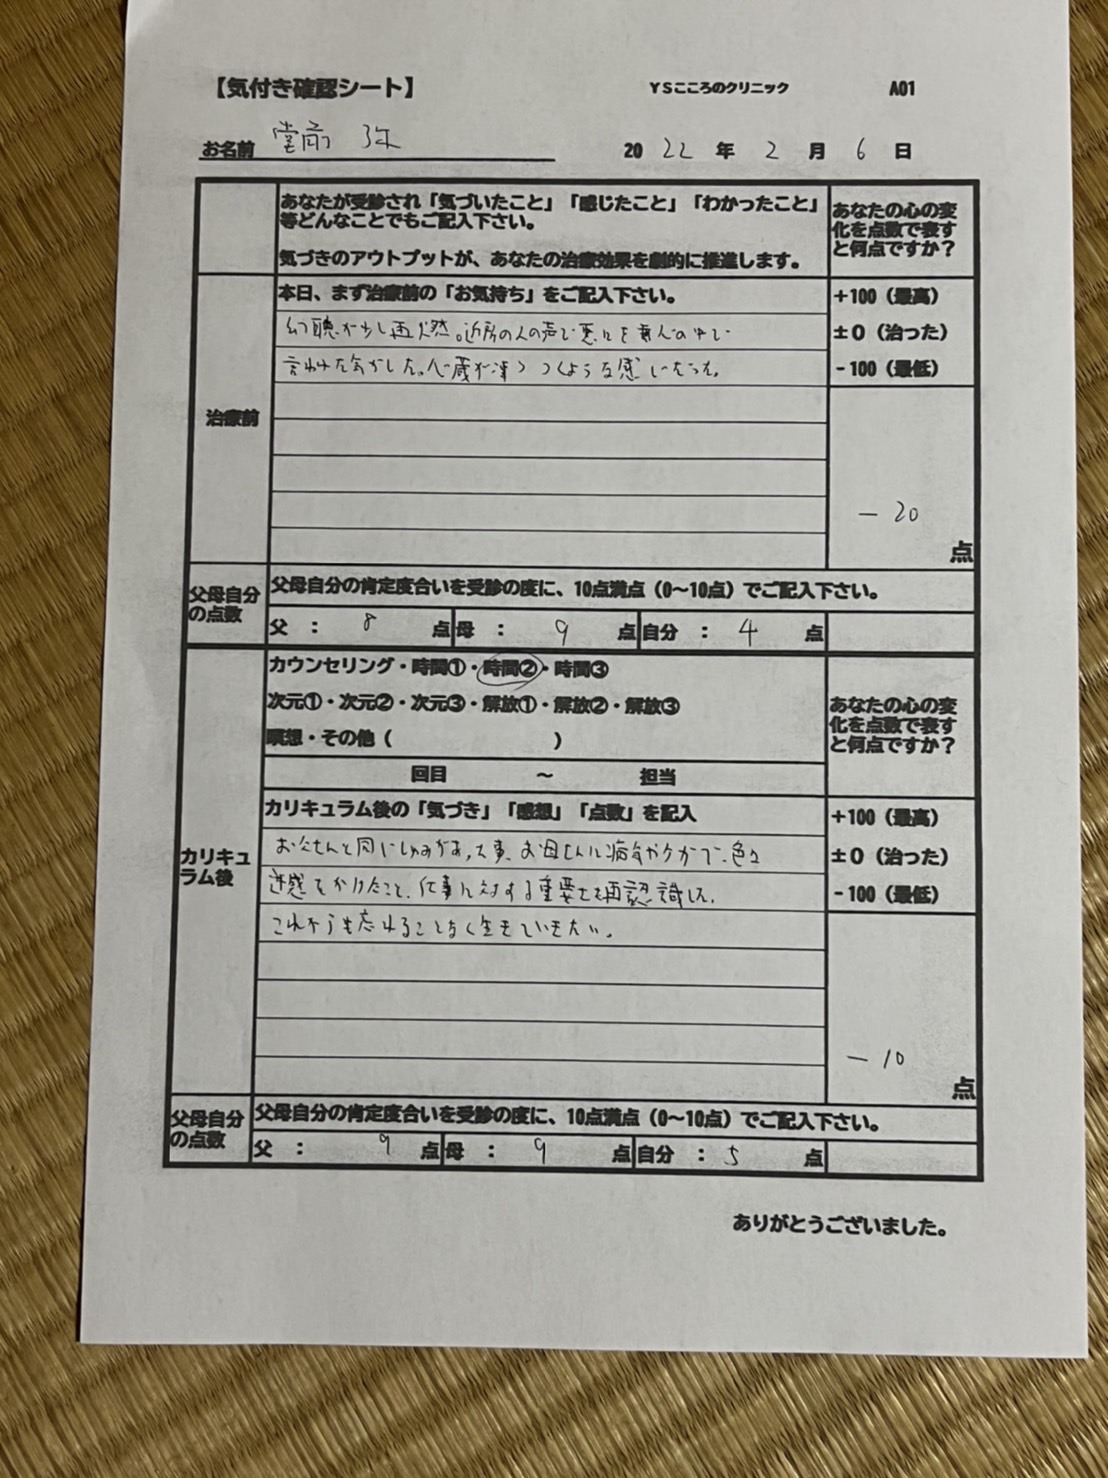 【気付き確認シート】 YSこころのクリニック A01
お名前 堂前 弥 2022年2月6日
あなたが受診され「気づいたこと」「感じたこと」「わかったこと」
等どんなことでもご記入下さい。
気づきのアウトプットが、あなたの治療効果を劇的に推進します。
あなたの心の変
化を点数で表す
と何点ですか？
治療前
本日、まず治療前の「お気持ち」をご記入下さい。
幻聴が少し再燃。近所の人の声で悪口を
言われた気がした。心臓が凍りつくような感じだった。
+100（最高）
±0（治った）
-100（最低）
-20
点
父母自分
の点数
父母自分の肯定度合いを受診の度に、10点満点（0～10点）でご記入下さい。
父 ： 8 点 母 ： 9 点 自分 ： 4 点
カリキュ
ラム後
カウンセリング・時間①・時間②・時間③
次元①・次元②・次元③・解放①・解放②・解放③
瞑想・その他（ ）
回目 ～ 担当
あなたの心の変
化を点数で表す
と何点ですか？
カリキュラム後の「気づき」「感想」「点数」を記入
お父さんと同じしゅみがあった事、お母さんに病気やケガで、色々
迷惑をかけたこと、仕事に対する重要さを再認識した。
これからも忘れることなく生きていきたい。
+100（最高）
±0（治った）
-100（最低）
-10
点
父母自分
の点数
父母自分の肯定度合いを受診の度に、10点満点（0～10点）でご記入下さい。
父 ： 9 点 母 ： 9 点 自分 ： 5 点
ありがとうございました。